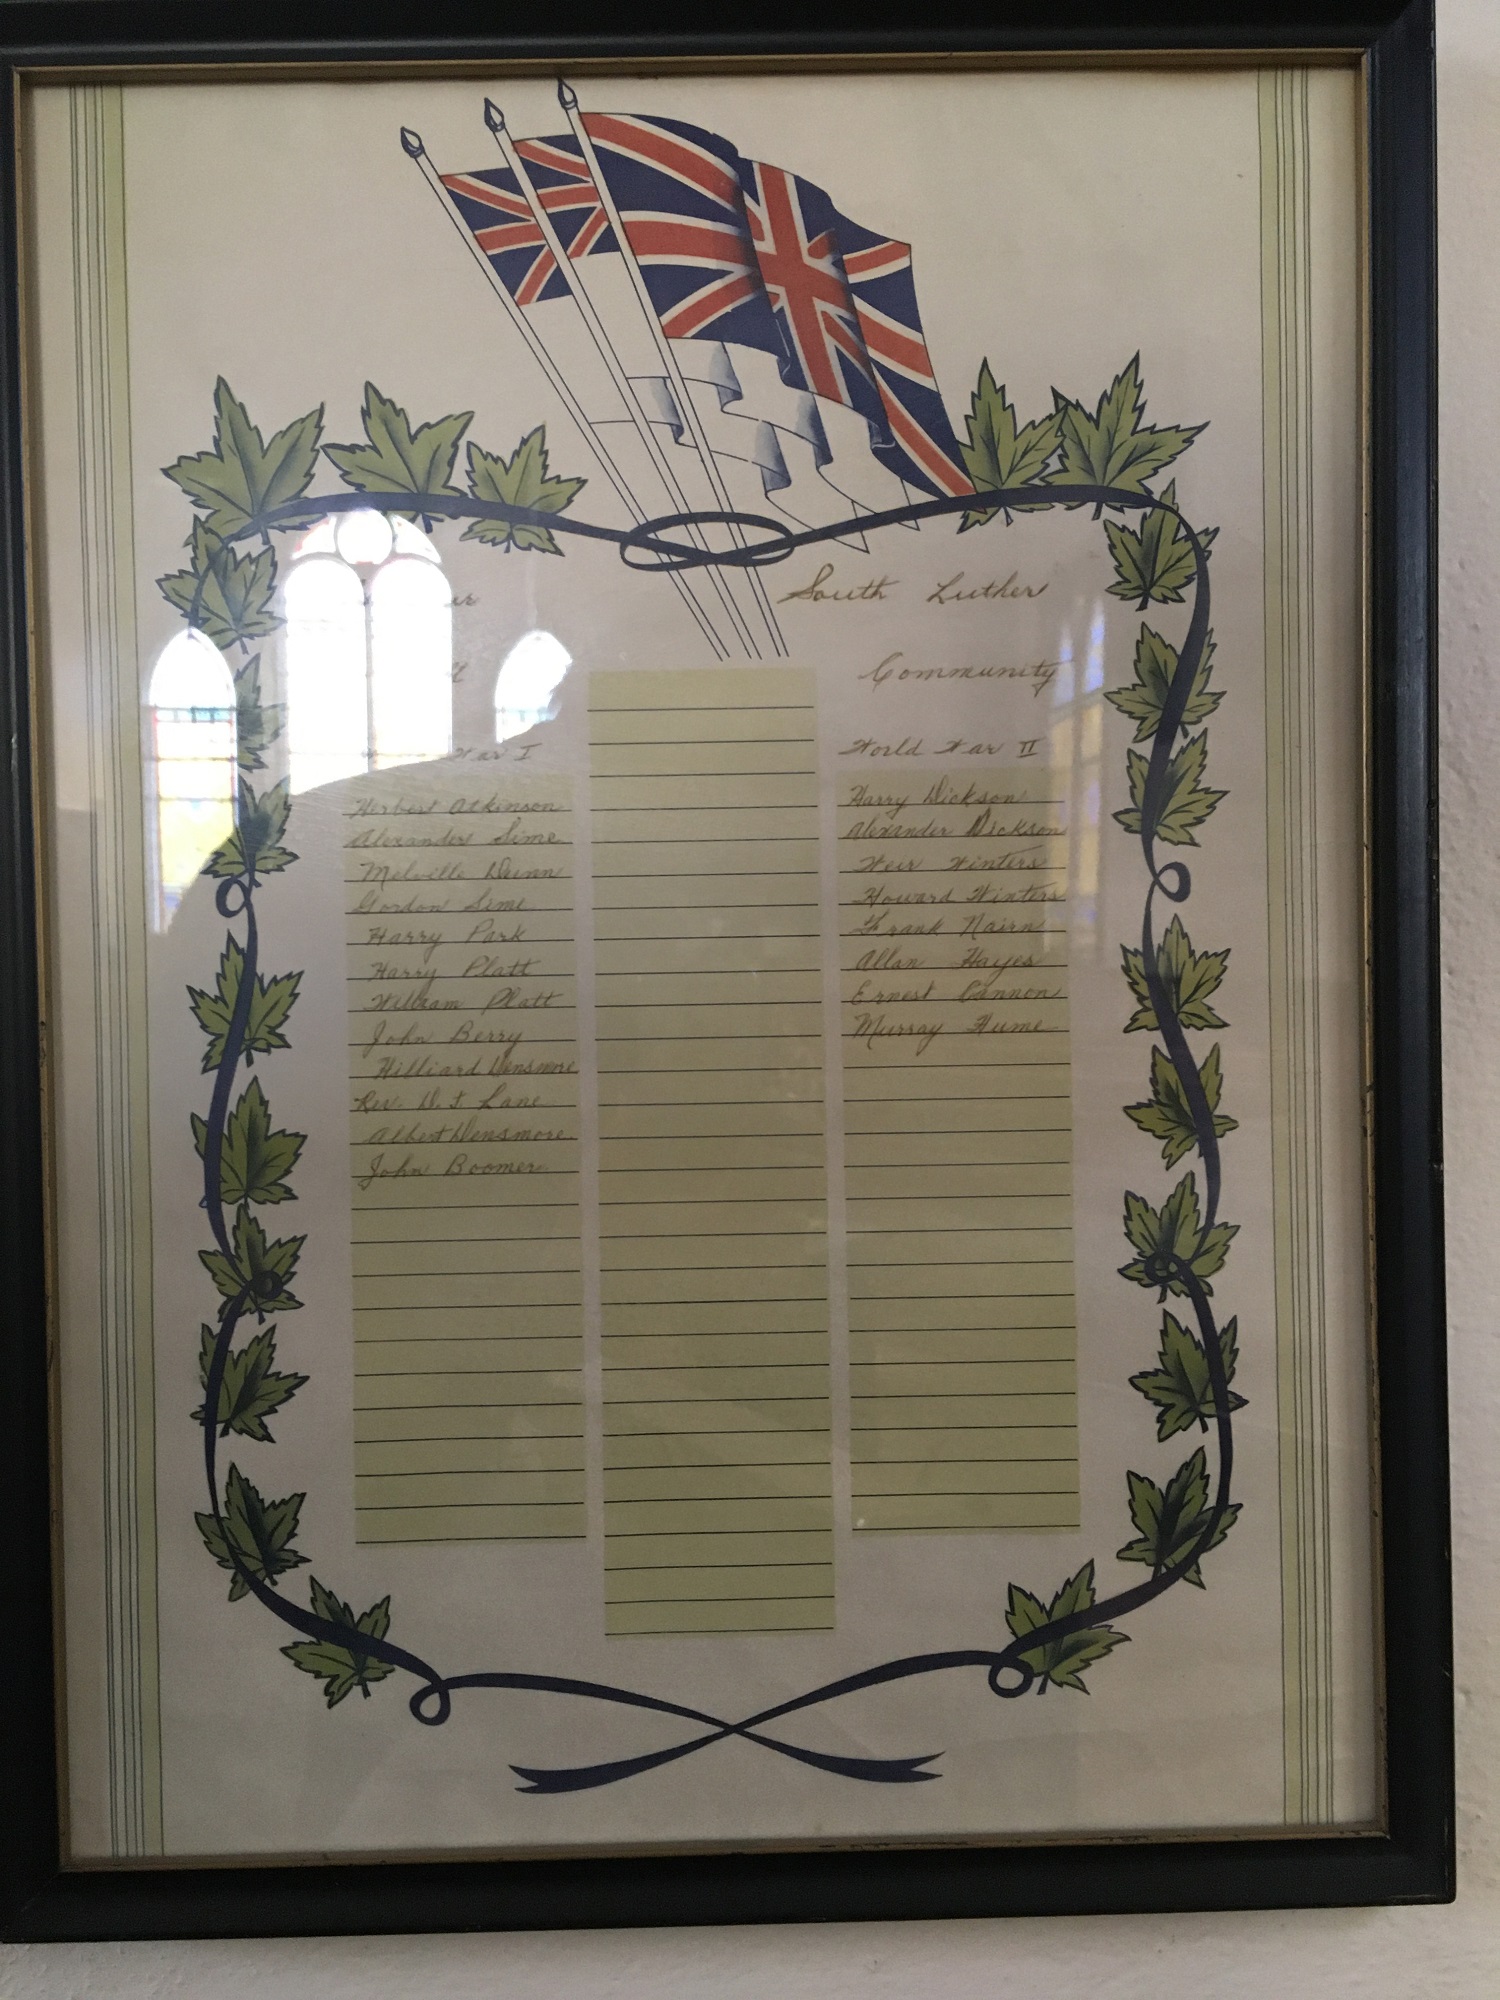 South Luther
Community
War I
Herbert Atkinson
Alexander Sime
Melville Dunn
Gordon Sime
Harry Park
Harry Platt
William Platt
John Berry
Hilliard Densmore
Rev. D. J. Lane
Albert Densmore
John Boomer
World War II
Harry Dickson
Alexander Dickson
Weir Winters
Howard Winters
Frank Nairn
Allan Hayes
Ernest Cannon
Murray Hume